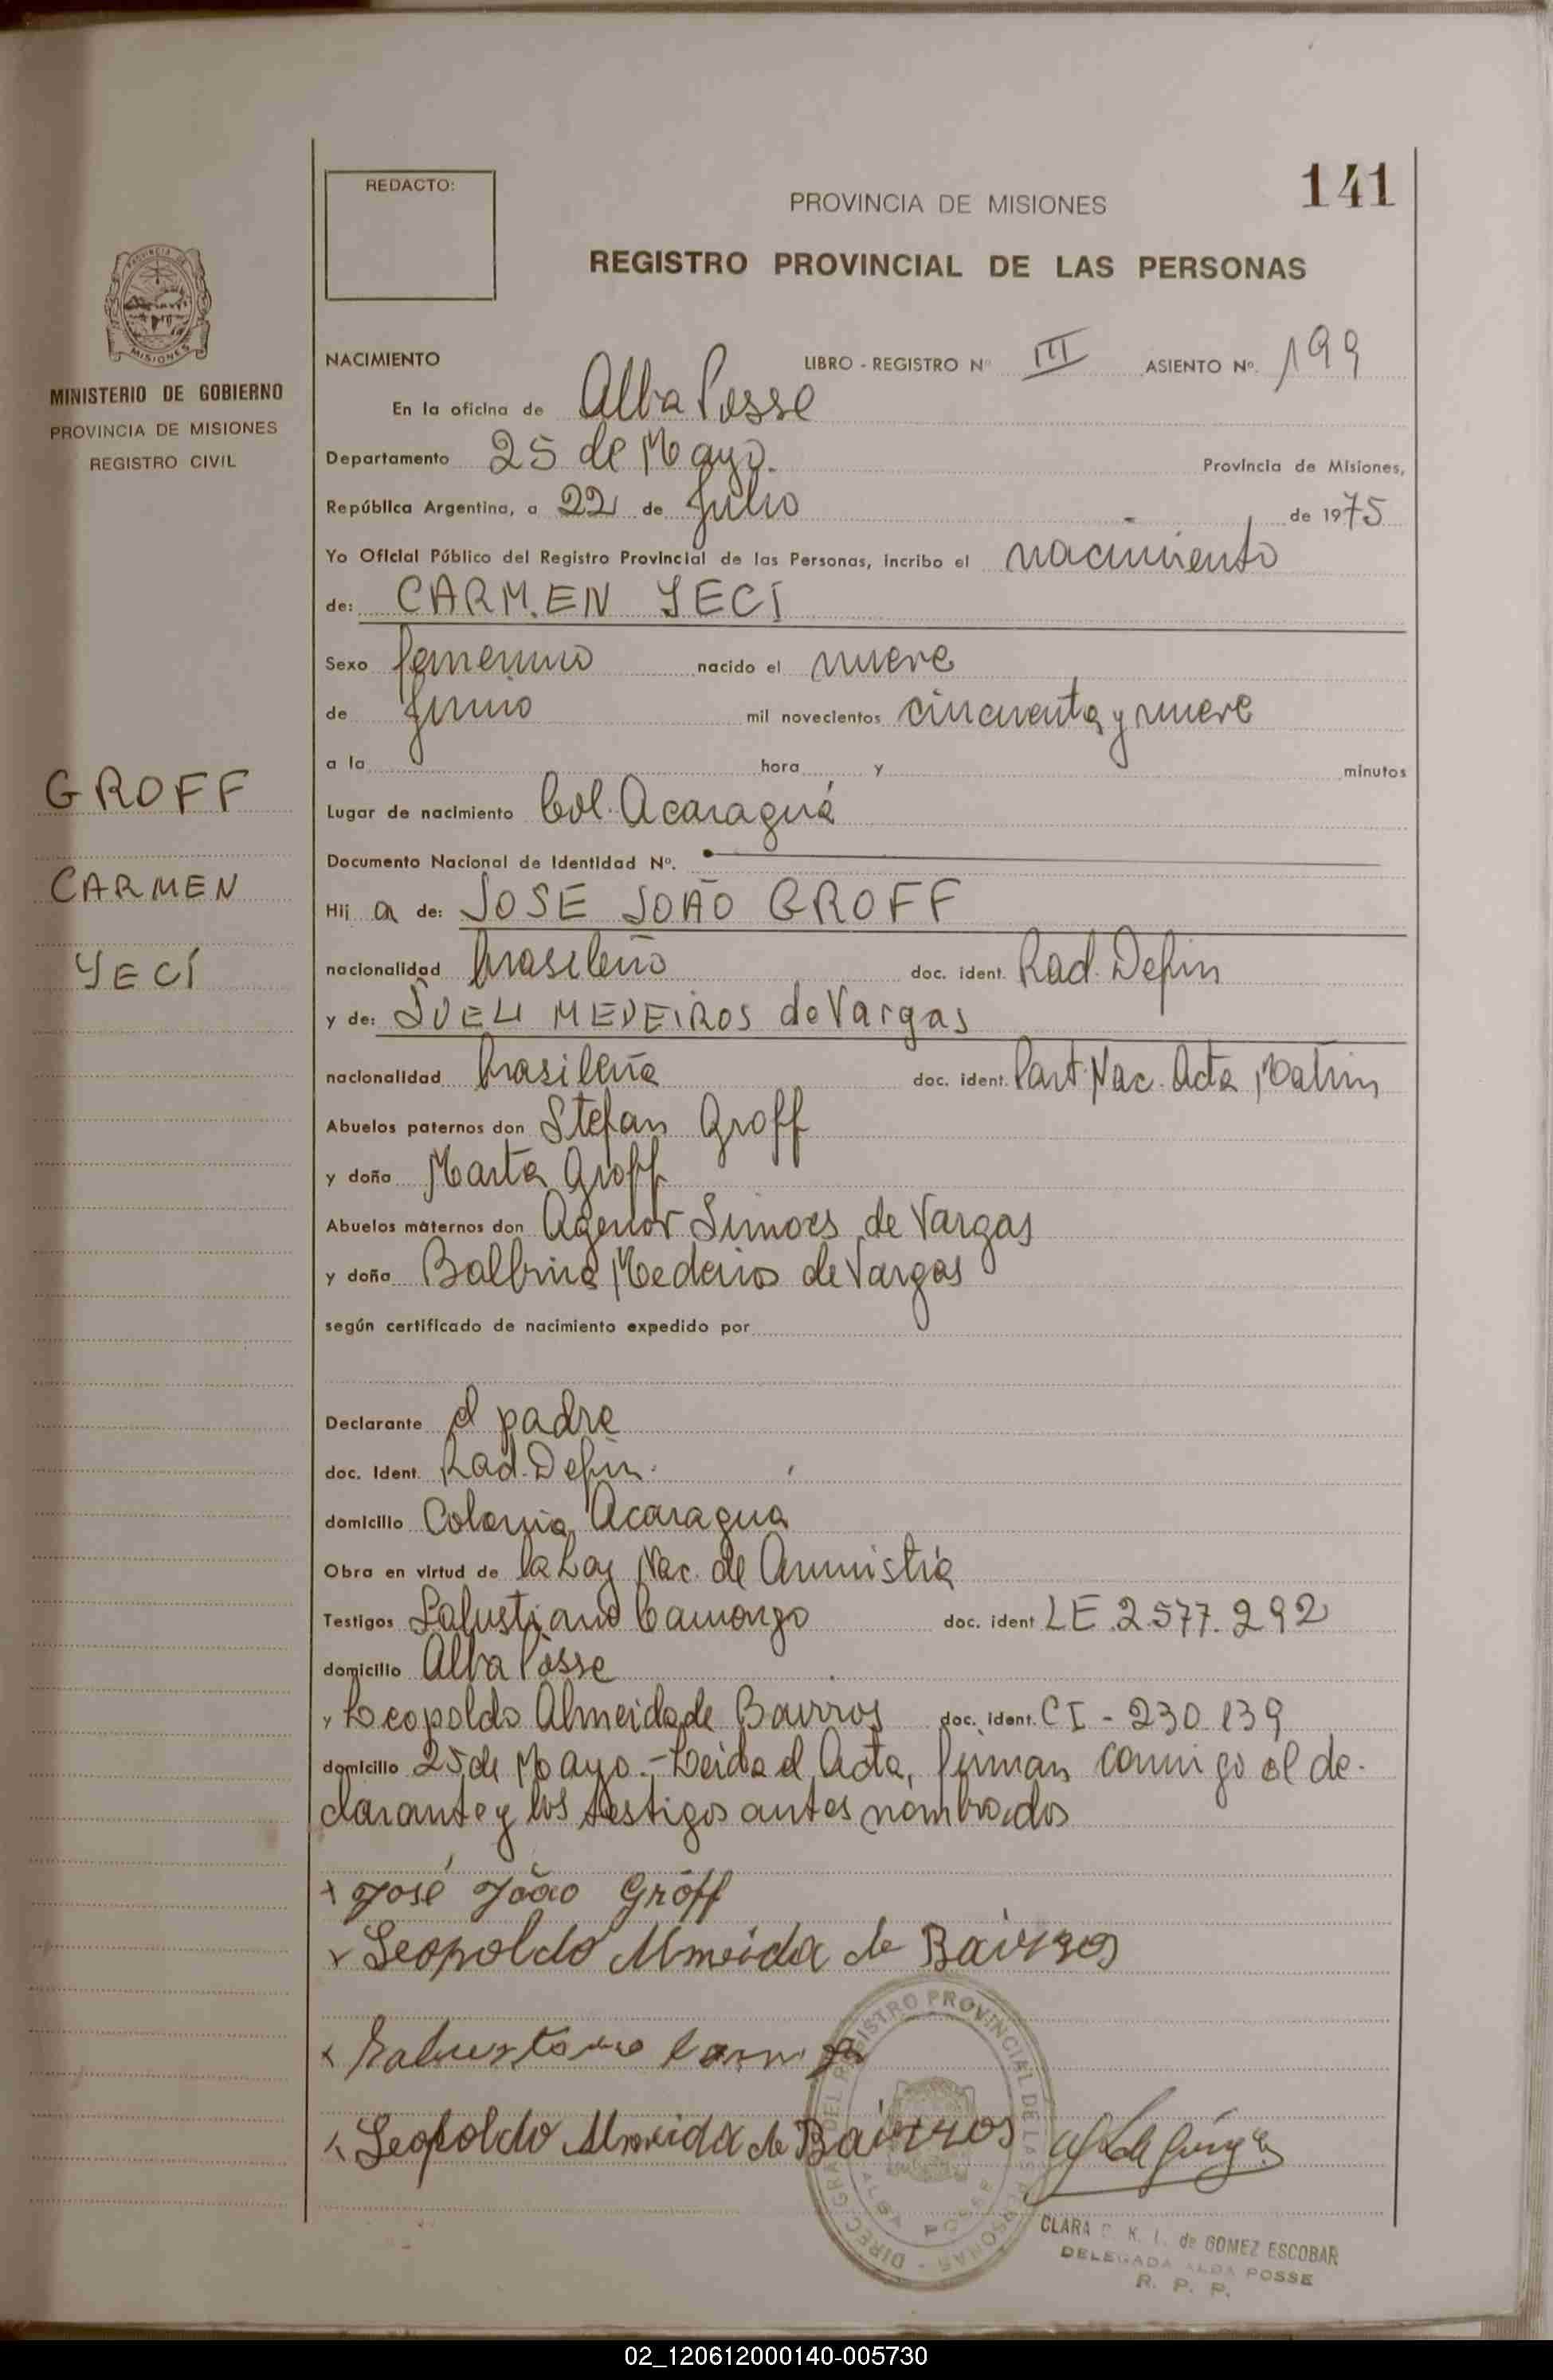 141
REDACTO:
PROVINCIA DE MISIONES
REGISTRO PROVINCIAL DE LAS PERSONAS
MISIONES
MINISTERIO DE GOBIERNO
PROVINCIA DE MISIONES
REGISTRO CIVIL
GROFF
CARMEN
YECÍ
NACIMIENTO LIBRO - REGISTRO Nº III ASIENTO Nº. 199
En la oficina de Alba Posse
Departamento 25 de Mayo. Provincia de Misiones,
República Argentina, a 22 de Julio de 1975
Yo Oficial Público del Registro Provincial de las Personas, incribo el nacimiento
de: CARMEN YECÍ
Sexo femenino nacido el nueve
de junio mil novecientos cincuenta y nueve
a la hora y minutos
Lugar de nacimiento Col. Acaraguá
Documento Nacional de Identidad Nº.
Hij a de: JOSE JOÃO GROFF
nacionalidad brasileño doc. ident. Rad. Defin
y de: SUELI MEDEIROS de Vargas
nacionalidad brasileña doc. ident. Part. Nac. Acta Matrim
Abuelos paternos don Stefan Groff
y doña Marta Groff
Abuelos maternos don Agenor Simoes de Vargas
y doña Balbina Medeiros de Vargas
según certificado de nacimiento expedido por
Declarante el padre
doc. Ident. Rad. Defin.
domicilio Colonia Acaragua
Obra en virtud de la Ley Nac. de Amnistía
Testigos Salustiano Camargo doc. ident LE 2.577.292
domicilio Alba Posse
y Leopoldo Almeida de Bairros doc. ident. CI - 230.139
domicilio 25 de Mayo.- Leida el Acta, firman conmigo el de-
clarante y los testigos antes nombrados
x José João Groff
x Leopoldo Almeida de Bairros
x Salustiano
x Leopoldo Almeida de Bairros
DIREC. GRAL. DEL REGISTRO PROVINCIAL DE LAS PERSONAS - ALBA POSSE
CLARA C. K. L. de GOMEZ ESCOBAR
DELEGADA ALBA POSSE
R. P. P.
02_120612000140-005730